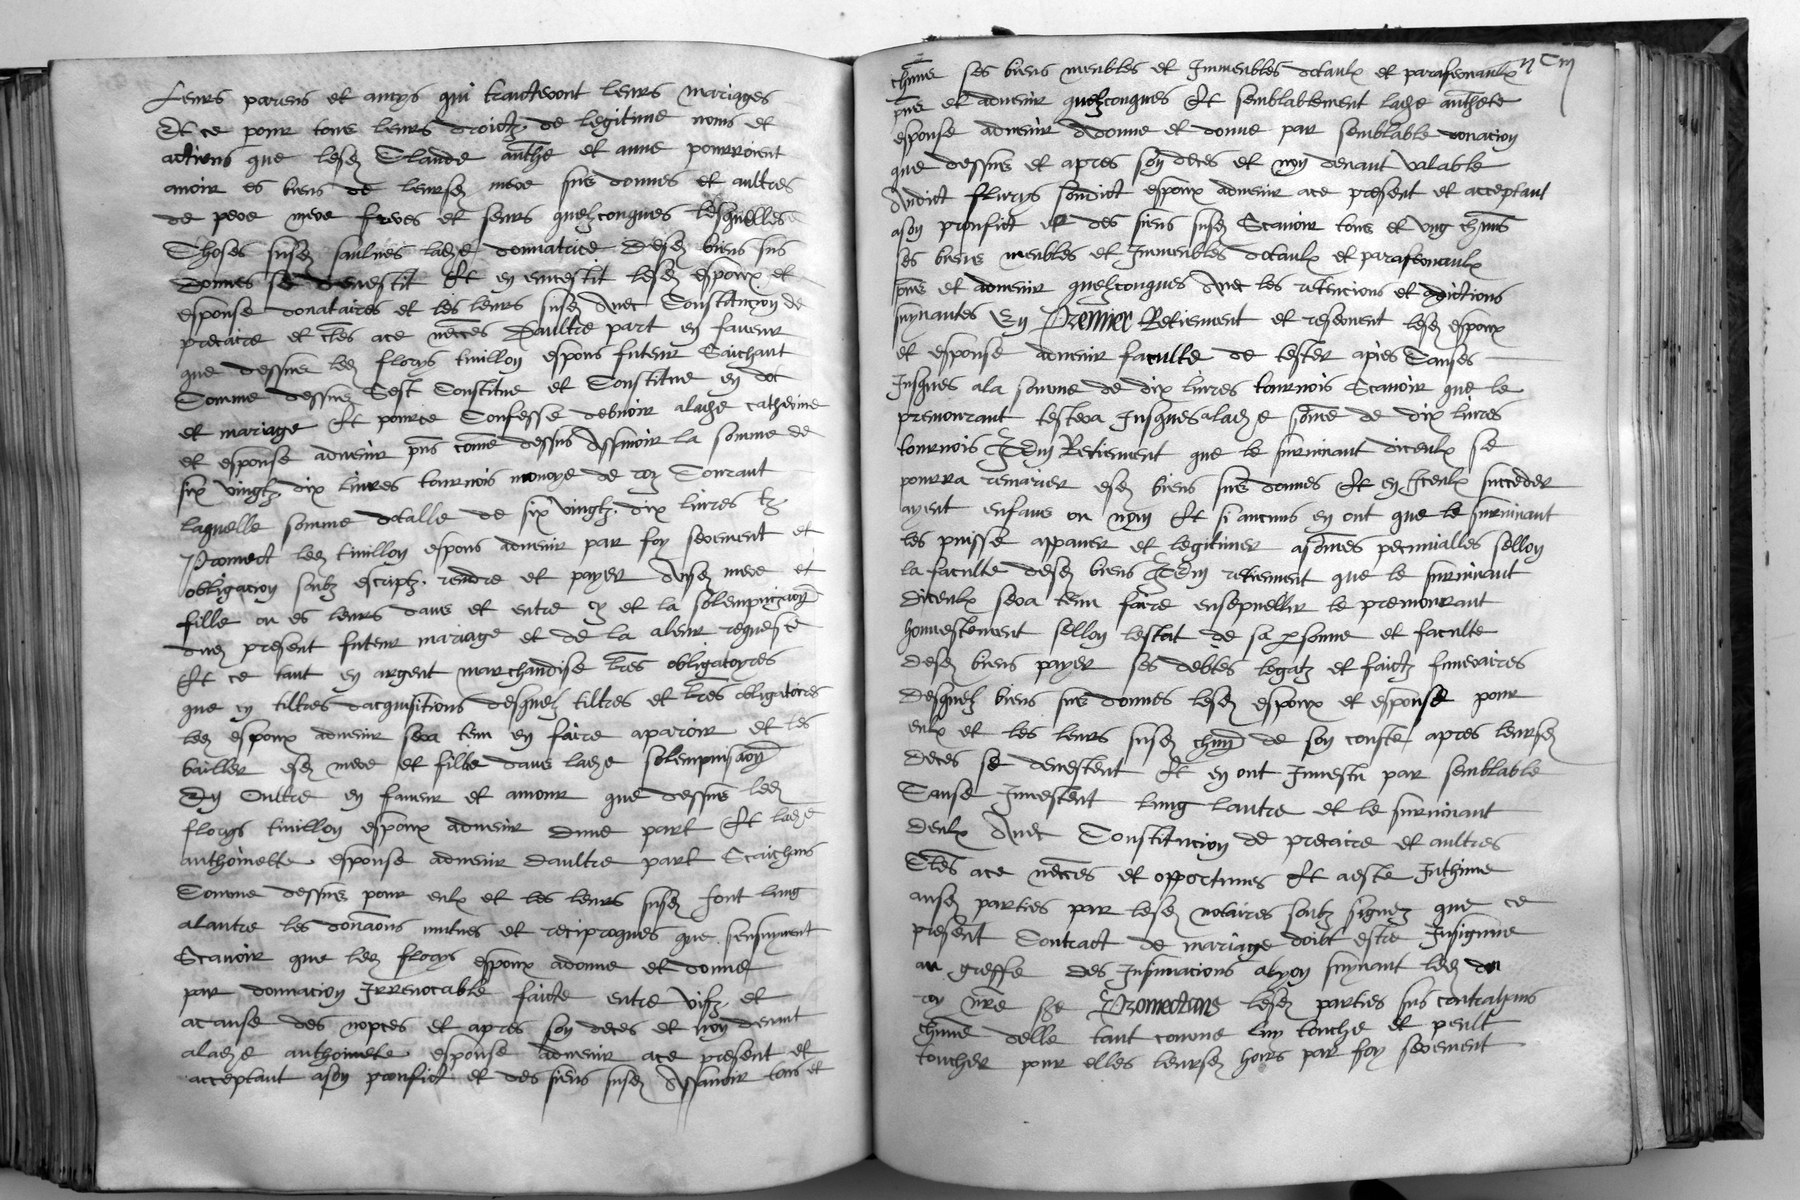 Leurs parens et amys qui traicteront leurs mariages
Et ce pour tous leurs droictz de legitime noms et
actions que lesd Claude anthe et anne pourroient
avoir es biens de leursd mere sus donnes et aultres
de pere mere freres et seurs quelzconques lesquelles
Choses susd saulnes lade donnatrice Desd biens sus
donnes se devestit Et en envestit lesd espoux et
espouse donataires et les leurs susd Avec Constitucion de
precaire et cles ace necces Daultre part en faveur
que dessus led florys tinillon espous futeur Saichant
Comme dessus Sest Constitue et Constitue en dot
et mariage Et pource Confesse debvoir alade catherine
et espouse advenir pns come dessus Assavoir la somme de
six vingtz dix livres tournois monoye de roy Courant
laquelle somme dotalle de six vingtz dix livres tz
Promect led tinillon espous advenir par foy serement et
obligacion soubz escriptz rendre et payer Ausd mere et
fille ou es leurs dans et entre cy et la solempnizaon
dud present futeur mariage et de la aleur requeste
Et ce tant en argent marchandise lres obligatoyres
que en tiltres dacquisitions desquelz tiltres et lres obligatoires
led espoux advenir sera tenu en faire aparoir et les
bailler esd mere et fille dans lade solempnisaon
En Oultre en faveur et amour que dessus led
florys tinillon espoux advenir Dune part Et lade
anthoinette espouse advenir Daultre part Scaichans
Comme dessus pour eulx et les leurs susd font lung
alautre les donaons mutues et reciproques que sensuyvent
Scavoir que led florys espoux adonne et donne
par donnacion Irrevocable faicte entre vifz et
acause des nopces et apres son deces et non devant
alade anthoinete espouse advenir ace present et
acceptant ason prouffict et des siens susd Assavoir tous et
chune ses biens meubles et Immeubles dotaulx et parafernaulx
pns et advenir quelzconques Et semblablement lade anthete
espouse advenir Adonne et donne par semblable donacion
que dessus et apres son deces et non devant valable
Audict florys sondict espoux advenir ace present et acceptant
ason prouffict et des siens susd Scavoir tous et ung chuns
ses biens meubles et Immeubles dotaulx et parafernaulx
pns et advenir quelzconques Avec les retencions et adictions
suyvantes En Premier Retienent et reservent lesd espoux
et espouse advenir faculte de tester apies Causes
Jusques ala somme de dix livres tournois Scavoir que le
premourant testera Jusques alade some de dix livres
tournois Idm Retienent que le survivant diceulx se
pourra remarier esd biens sus donnes Et en Iceulx succeder
ayent enfans ou non Et si aucuns en ont que le survivant
les puisse appaner et legitimer asomes pecunialles sellon
la faculte desd biens Idm retienent que le survivant
diceulx sera tenu faire ensepuellir le premourant
honnestement sellon lestat de sa psonne et faculte
desd biens payer ses debtes legatz et faictz funeraires
Desquelz biens sus donnes lesd espoux et espouse pour
eulx et les leurs susd chung de son couste apres leursd
Deces se devestent Et en ont Investu par semblable
Cause Investent lung lautre et le survivant
deulx Avec Constitucion de precaire et aultres
Cles ace necces et opportunes Et aeste Inthime
ausd parties par lesd notaires soubz signez que ce
present Contract de mariage doibt estre Insignue
au greffe des Insinuacions alyon suyvant led du
roy nre sge Promectans lesd parties sus contrahans
chune delle tant comme luy touche et peult
toucher pour elles leursd hoirs par foy serement